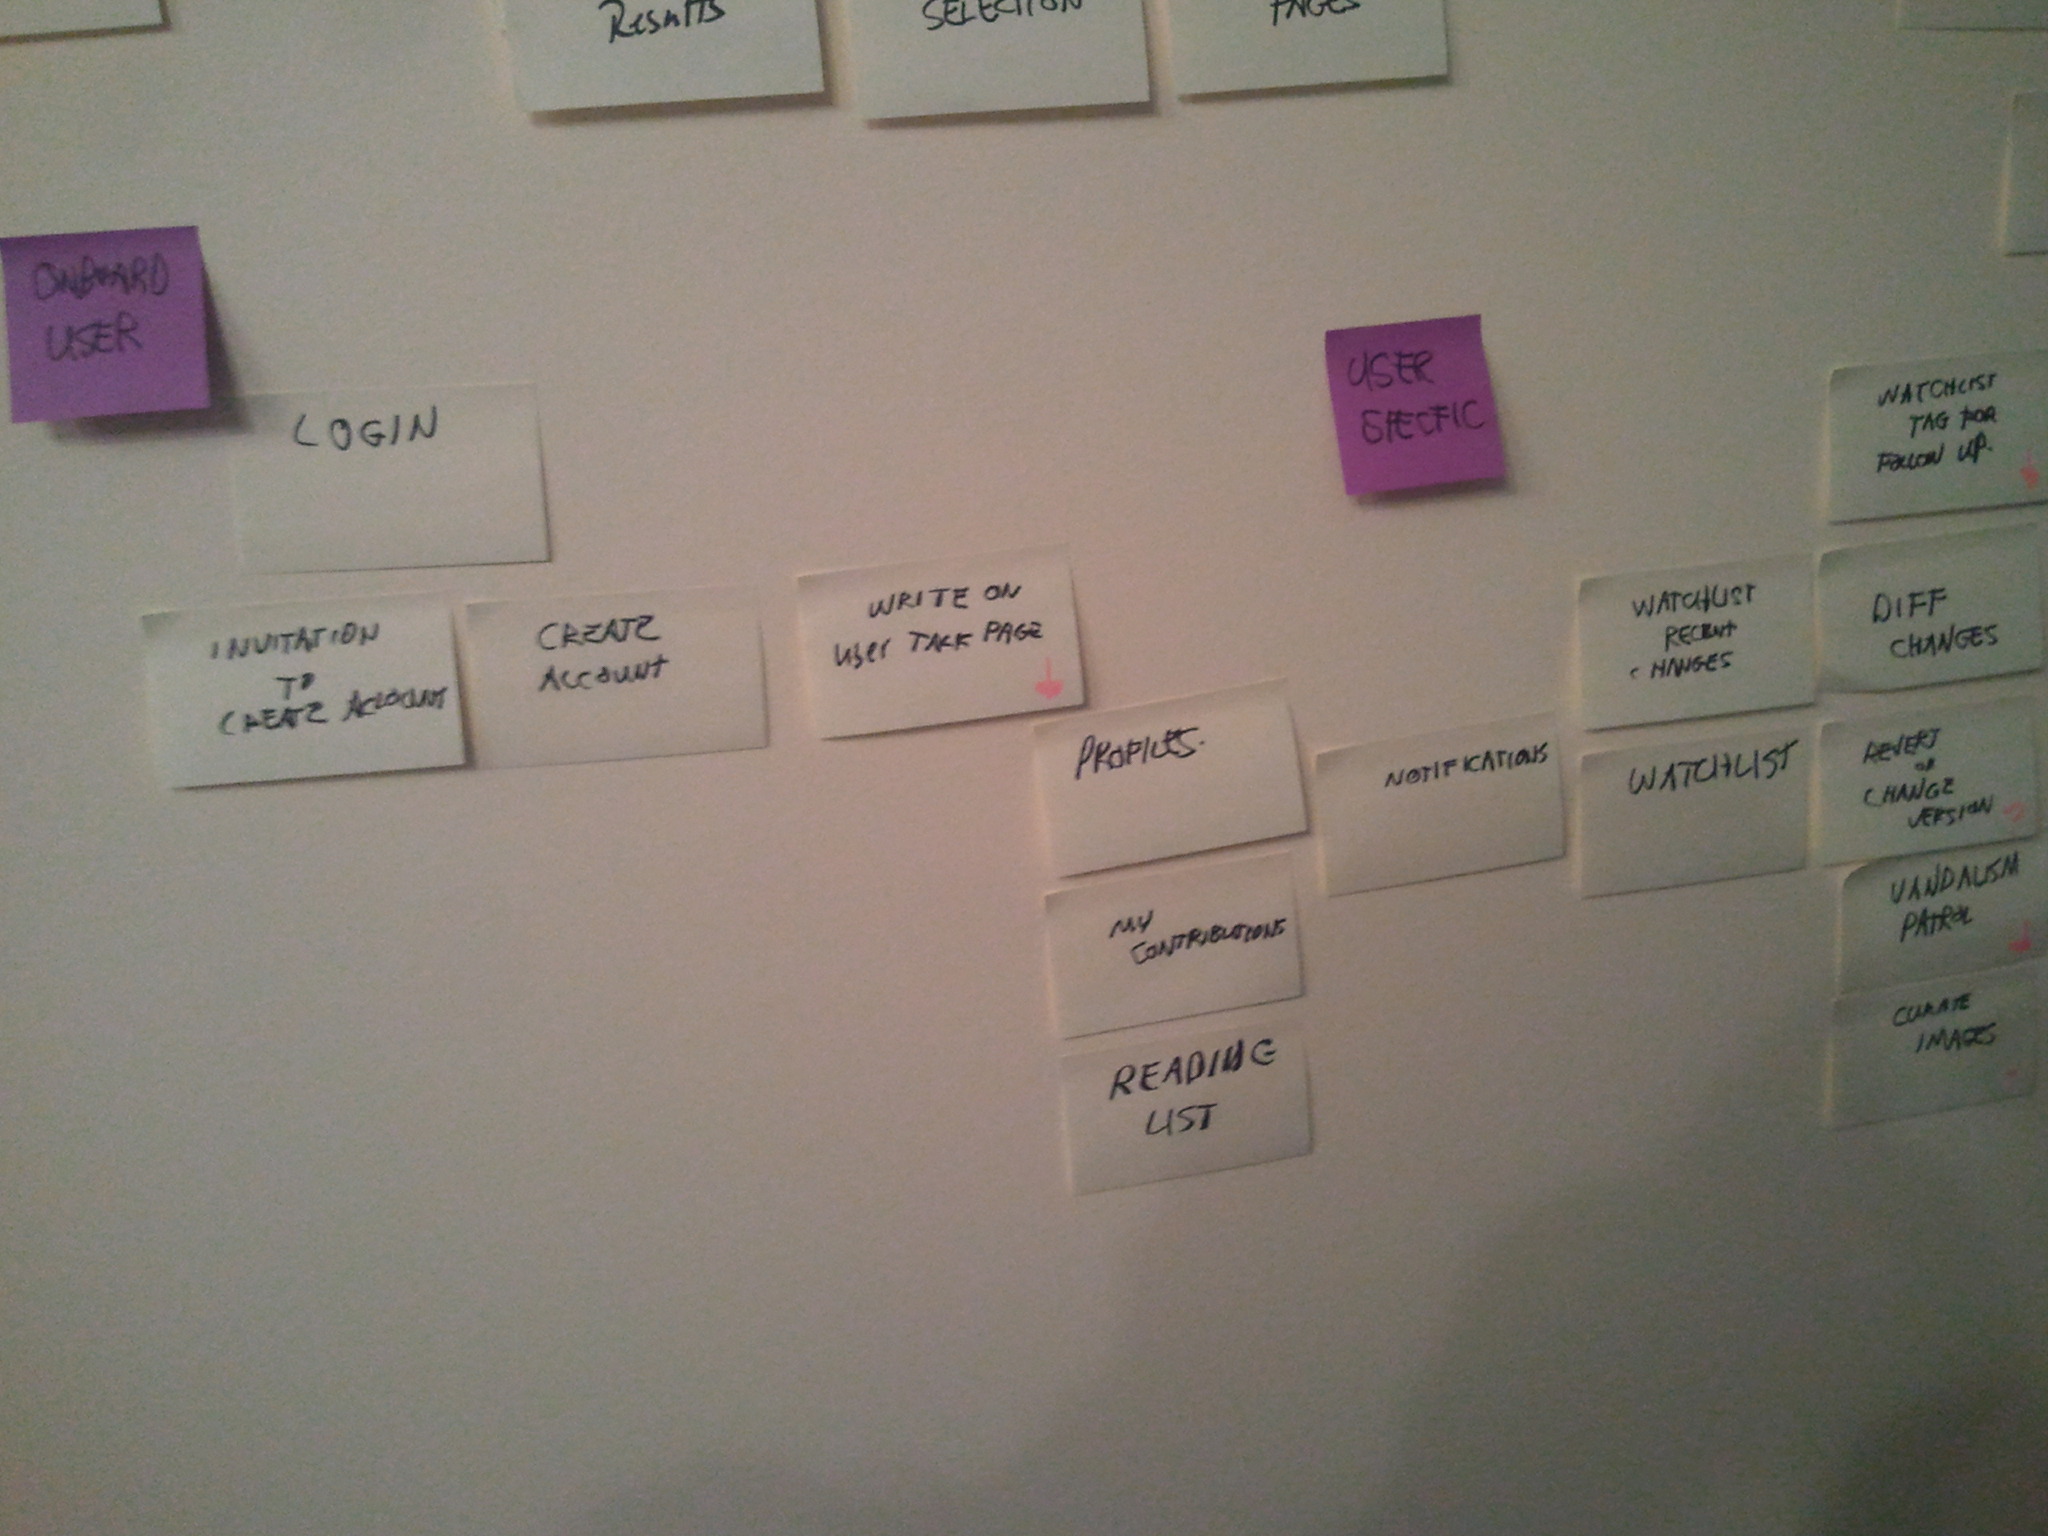 Results
SELECTION
PAGES
ONBOARD
USER
LOGIN
INVITATION
TO
CREATE ACCOUNT
CREATE
ACCOUNT
WRITE ON
User TALK PAGE
USER
SPECIFIC
PROFILES.
MY
CONTRIBUTIONS
READING
LIST
NOTIFICATIONS
WATCHLIST
RECENT
CHANGES
WATCHLIST
WATCHLIST
TAG FOR
FOLLOW UP.
DIFF
CHANGES
REVERT
OR
CHANGE
VERSION
VANDALISM
PATROL
CURATE
IMAGES